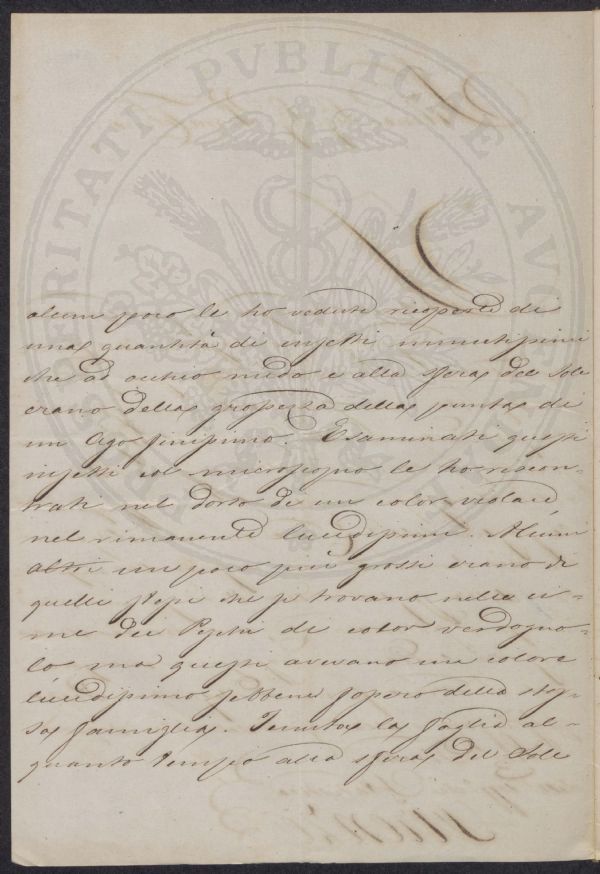 PROSPERITATI PVBLICAE AVGENDAE
alcun poco le ho vedute ricoperte di
una quantità di insetti minutissimi
che ad occhio nudo e alla sfera del Sole
erano della grossezza della punta di
un Ago finissimo. Esaminati questi
insetti col microscopio le ho riscon-
trati nel dorso di un color violaceo,
nel rimanente lucidissimi. Alcuni
altri un poco più grossi erano di
quelli stessi che si trovano nelle ci-
me dei Peschi di color verdogno-
lo ma questi avevano un colore
lucidissimo sebbene fossero della stes-
sa famiglia. Tenuta la foglia al-
quanto tempo alla sfera del Sole